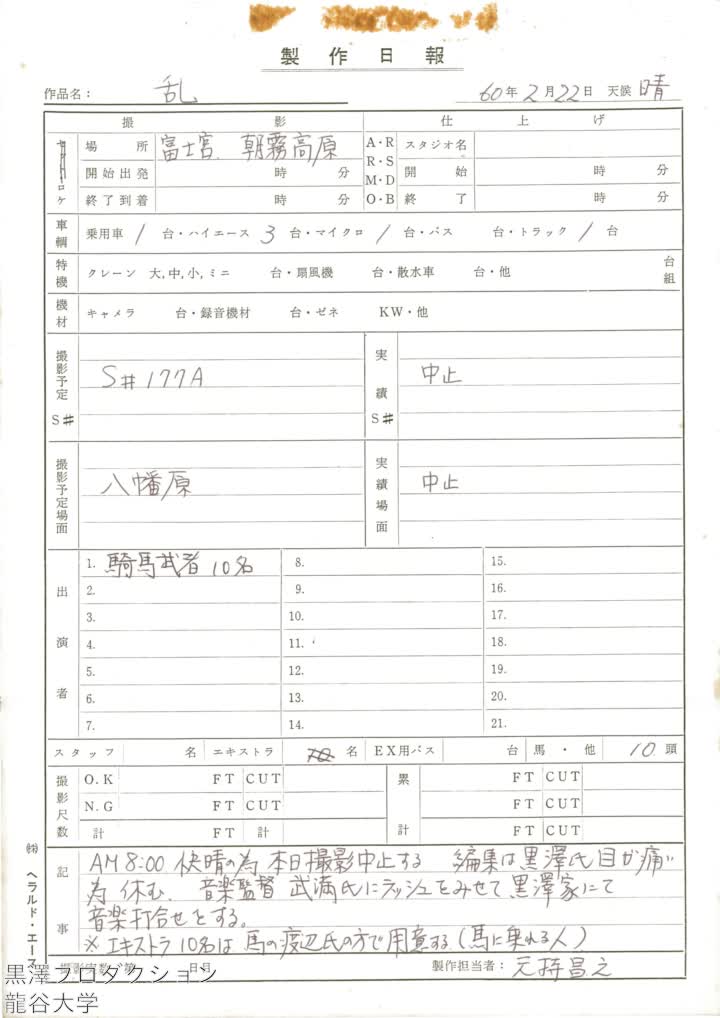 製作日報
作品名： 乱 60年2月22日 天候 晴
撮影 仕上げ
ロケ 場所 富士宮、朝霧高原 A・R スタジオ名
開始出発 時 分 R・S 開始 時 分
終了到着 時 分 M・D O・B 終了 時 分
車輌 乗用車 1 台・ハイエース 3 台・マイクロ 1 台・バス 台・トラック 1 台
特機 クレーン 大,中,小,ミニ 台・扇風機 台・散水車 台・他 台組
機材 キャメラ 台・録音機材 台・ゼネ KW・他
撮影予定S# S#177A 実績S# 中止
撮影予定場面 八幡原 実績場面 中止
出演者
1. 騎馬武者 10名 8. 15.
2. 9. 16.
3. 10. 17.
4. 11. 18.
5. 12. 19.
6. 13. 20.
7. 14. 21.
スタッフ 名 エキストラ 名 EX用バス 台 馬・他 10 頭
撮影尺数 O.K FT CUT 累計 FT CUT
N.G FT CUT FT CUT
計 FT 計 FT CUT
記事 AM8:00 快晴の為本日撮影中止する 編集は黒澤氏目が痛い
為休む、音楽監督 武満氏にラッシュをみせて黒澤家にて
音楽打合せをする。
※エキストラ10名は馬の渡辺氏の方で用意する(馬に乗れる人)
撮影実数 第 日目 製作担当者： 元持昌之
㈱ ヘラルド・エース
黒澤プロダクション
龍谷大学